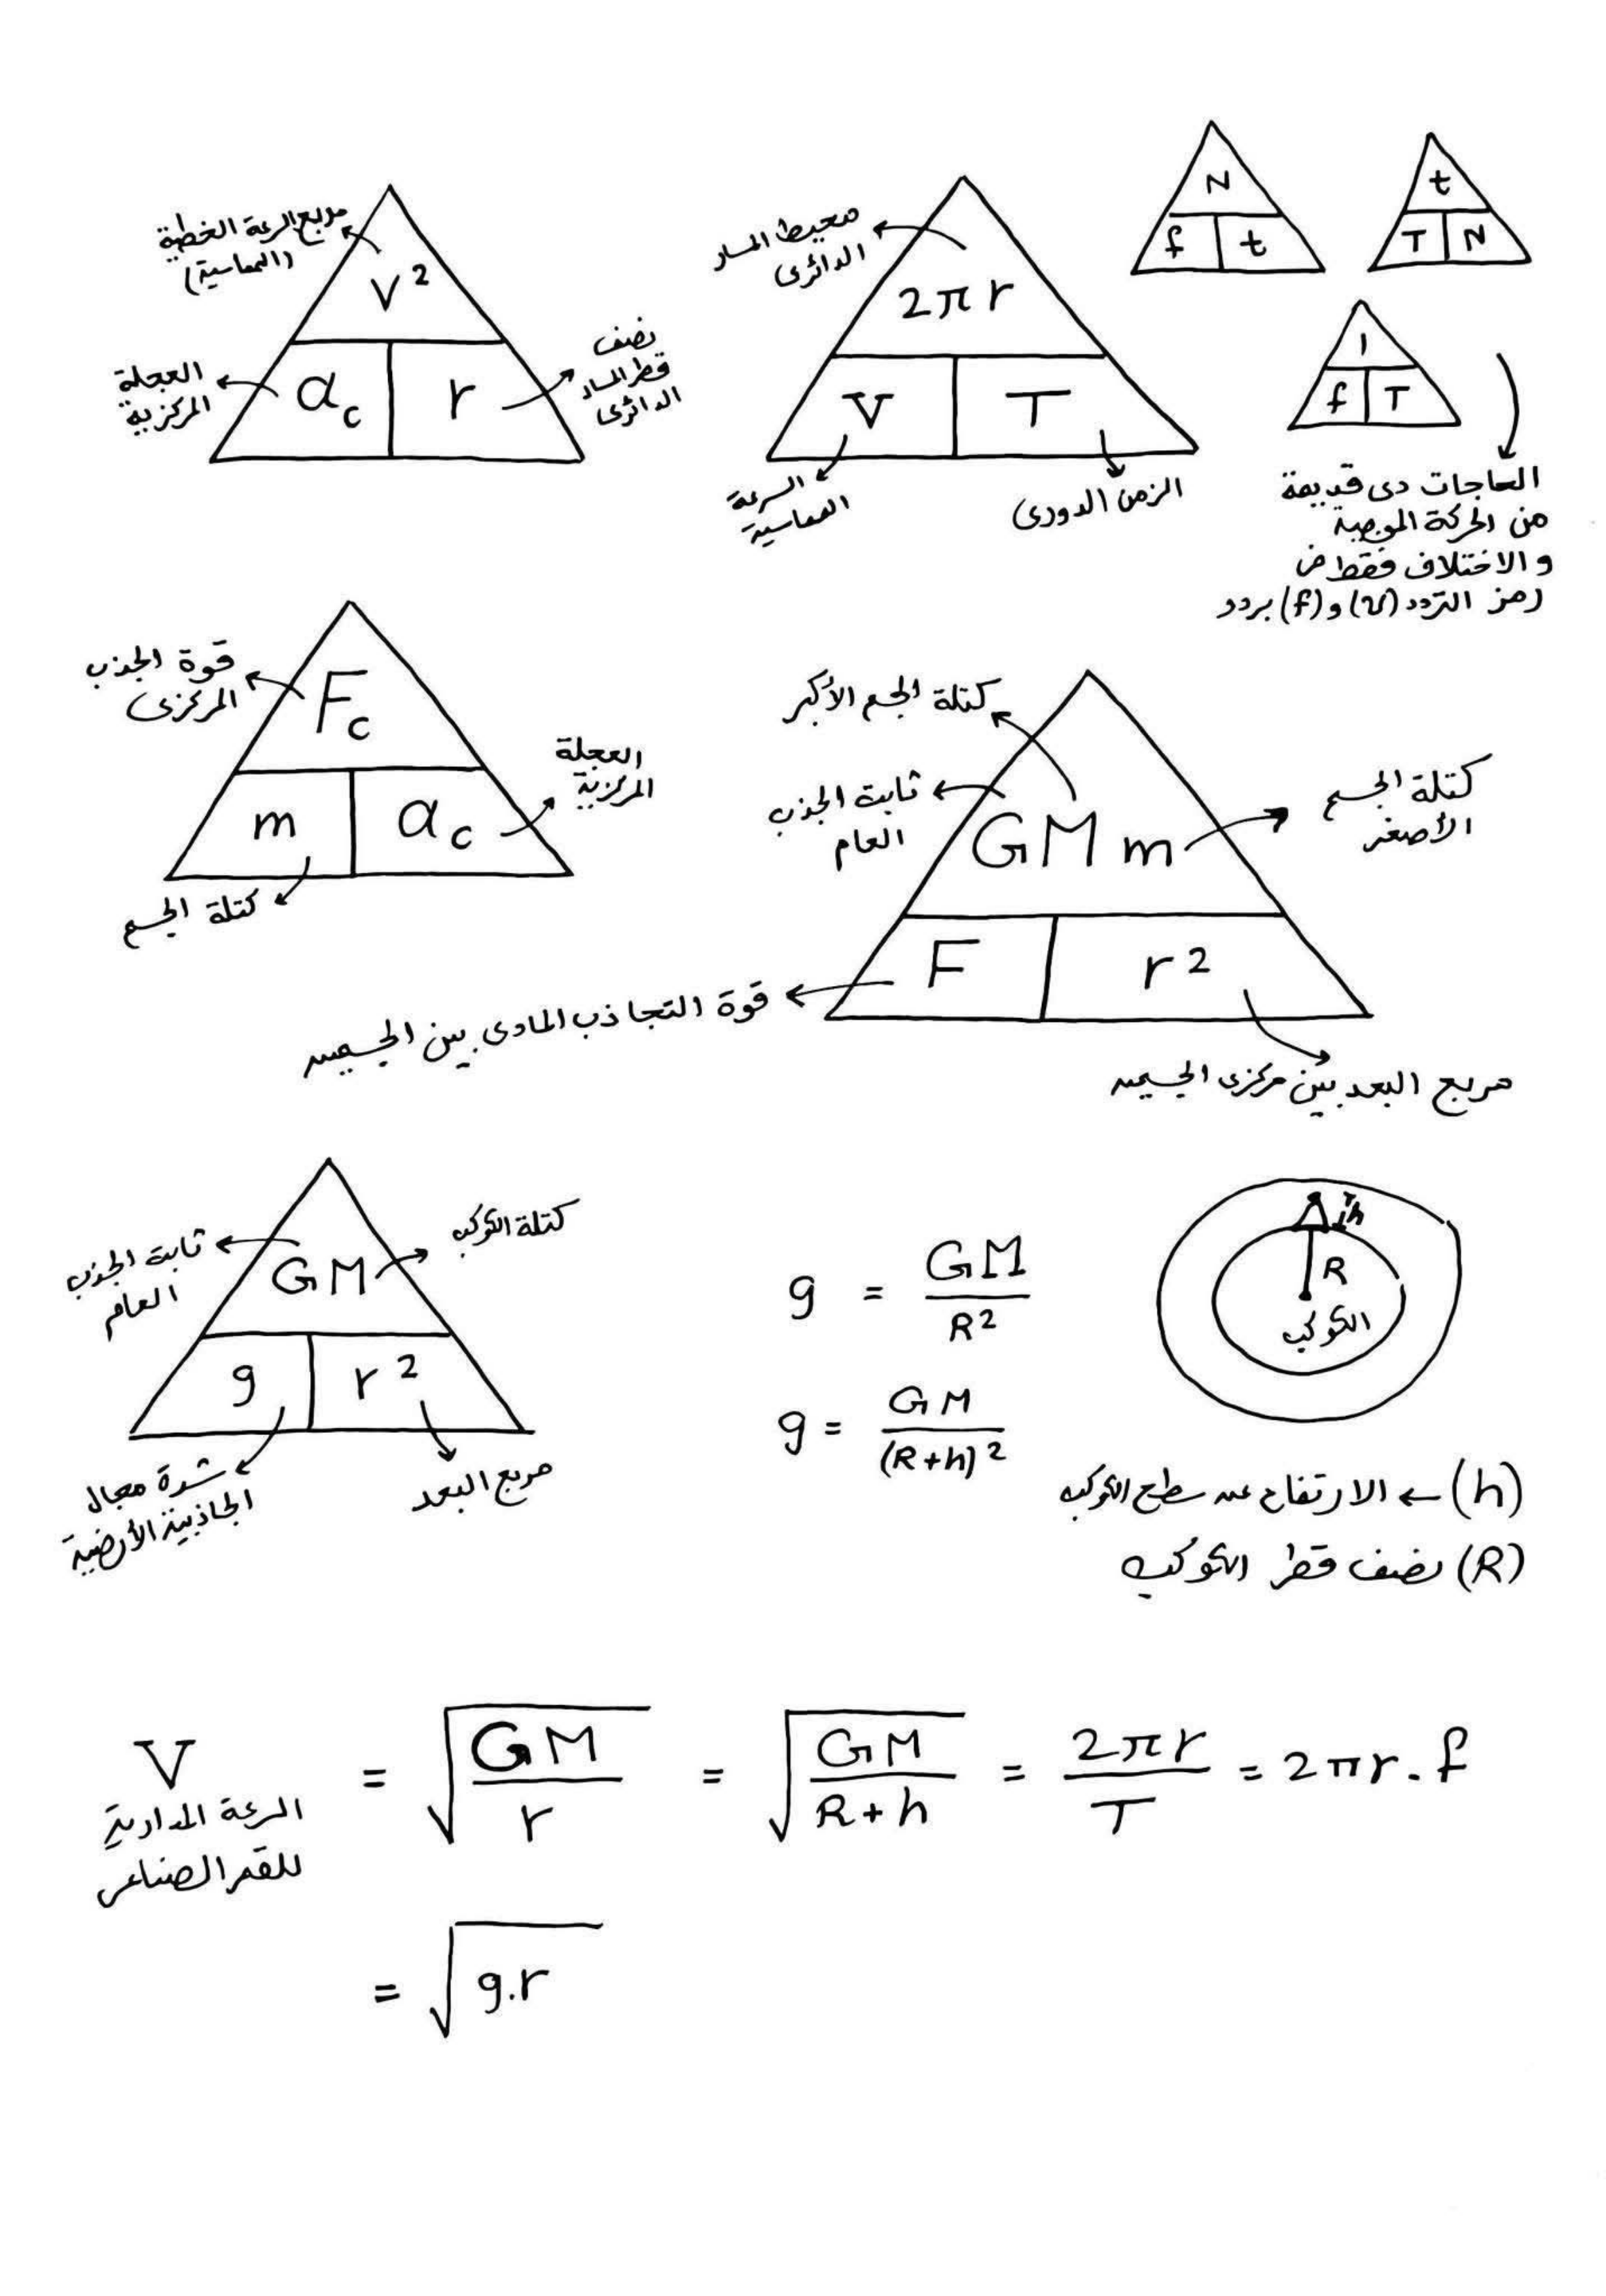 مربع السرعة الخطية
(المماسية)
V²
العجلة
المركزية
a_c
r
نصف
قطر المسار
الدائرى
محيط المسار
الدائرى
2πr
V
T
السرعة
المماسية
الزمن الدورى
N
f
t
t
T
N
1
f
T
الحاجات دى قديمة
من الحركة الموجية
والاختلاف فقط فى
رمز التردد (ν) و (f) بردو
قوة الجذب
المركزى
F_c
m
a_c
العجلة
المركزية
كتلة الجسم
كتلة الجسم الأكبر
ثابت الجذب
العام
GMm
كتلة الجسم
الأصغر
F
r²
قوة التجاذب المادى بين الجسمين
مربع البعد بين مركزى الجسمين
ثابت الجذب
العام
GM
كتلة الكوكب
g
r²
شدة مجال
الجاذبية الأرضية
مربع البعد
g = GM / R²
g = GM / (R+h)²
h
R
الكوكب
(h) ← الارتفاع عن سطح الكوكب
(R) نصف قطر الكوكب
V = √(GM / r) = √(GM / R+h) = 2πr / T = 2πr . f
السرعة المدارية
للقمر الصناعى
= √g.r